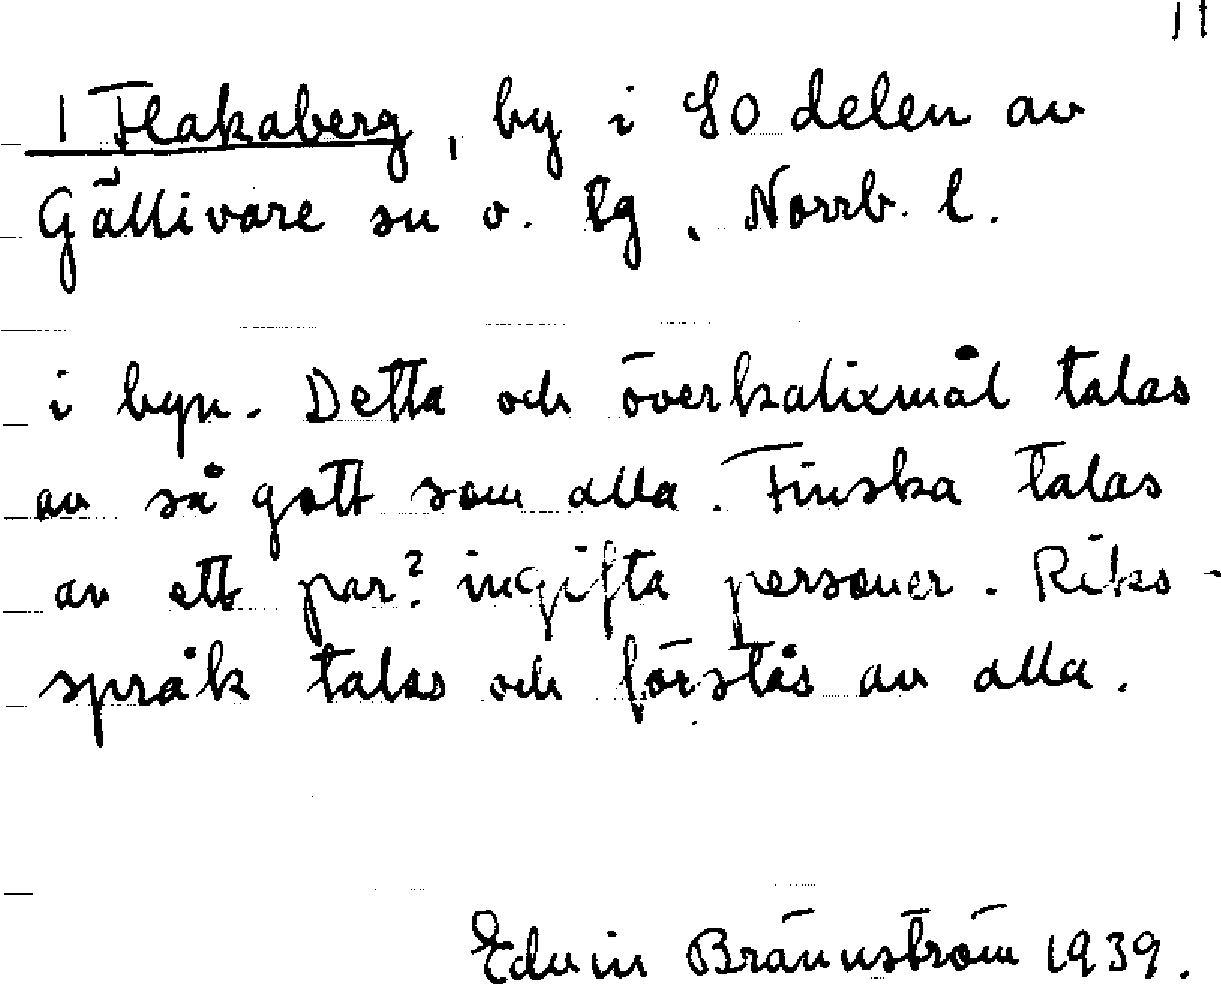 11
1 Flakaberg, by i SO delen av
Gällivare sn o. tg, Norrb. l.
i byn. Detta och överkalixmål talas
av så gott som alla. Finska talas
av ett par? ingifta personer. Riks-
språk talas och förstås av alla.
Edvin Brännström 1939.